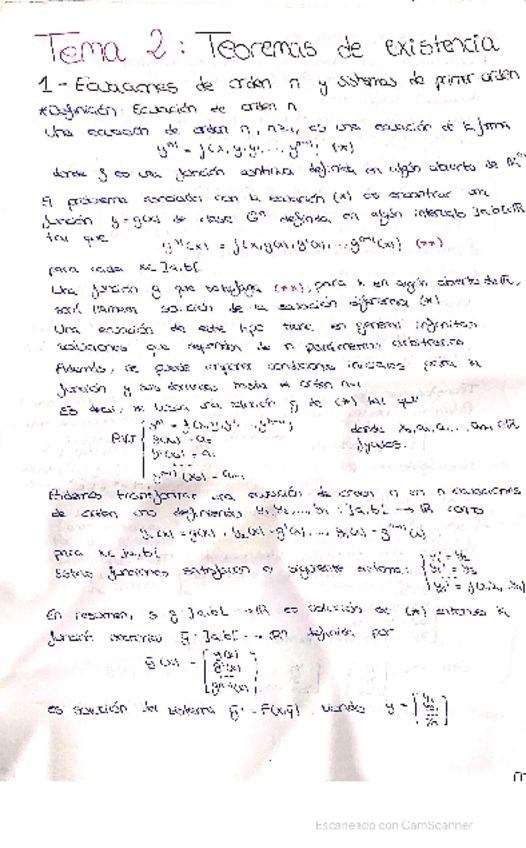 Tema 2: Teoremas de existencia
1- Ecuaciones de orden n y sistemas de primer orden
*Definición. Ecuación de orden n
Una ecuación de orden n, n≥1, es una ecuación de la forma
y⁽ⁿ⁾ = f(x, y, y', ..., y⁽ⁿ⁻¹⁾) (*)
donde f es una función continua definida en algún abierto de
El problema asociado con la ecuación (*) es encontrar una
función y = g(x) de clase Cⁿ definida en algún intervalo ]a,b[⊂ℝ
tal que g⁽ⁿ⁾(x) = f(x, g(x), g'(x), ..., g⁽ⁿ⁻¹⁾(x)) (**)
para cada x∈]a,b[
Una función g que satisfaga (**), para x en algún abierto de ℝ,
será llamada solución de la ecuación diferencial (*).
Una ecuación de este tipo tiene en general infinitas
soluciones que dependen de n parámetros arbitrarios.
Además, se puede imponer condiciones iniciales para la
función y sus derivadas hasta el orden n-1
Es decir, se busca una solución g de (*) tal que
y⁽ⁿ⁾ = f(x, y, y', ..., y⁽ⁿ⁻¹⁾) donde x₀, a₀, a₁, ..., aₙ₋₁ ∈ℝ
PVI y(x₀) = a₀ fijados.
y'(x₀) = a₁
...
y⁽ⁿ⁻¹⁾(x₀) = aₙ₋₁
Podemos transformar una ecuación de orden n en n ecuaciones
de orden uno definiendo y₁, y₂, ..., yₙ : ]a,b[ → ℝ como
y₁(x) = g(x), y₂(x) = g'(x), ..., yₙ(x) = g⁽ⁿ⁻¹⁾(x)
para x∈]a,b[
Estas funciones satisfacen el siguiente sistema: y₁' = y₂
y₂' = y₃
...
yₙ' = f(x, y₁, ..., yₙ)
En resumen, si g: ]a,b[ → ℝ es solución de (*) entonces la
función vectorial ḡ: ]a,b[ → ℝⁿ definida por
ḡ(x) = [g(x) g'(x) ... g⁽ⁿ⁻¹⁾(x)]
es solución del sistema ȳ' = F(x,ȳ) siendo y = [y₁ y₂ ... yₙ]
Escaneado con CamScanner